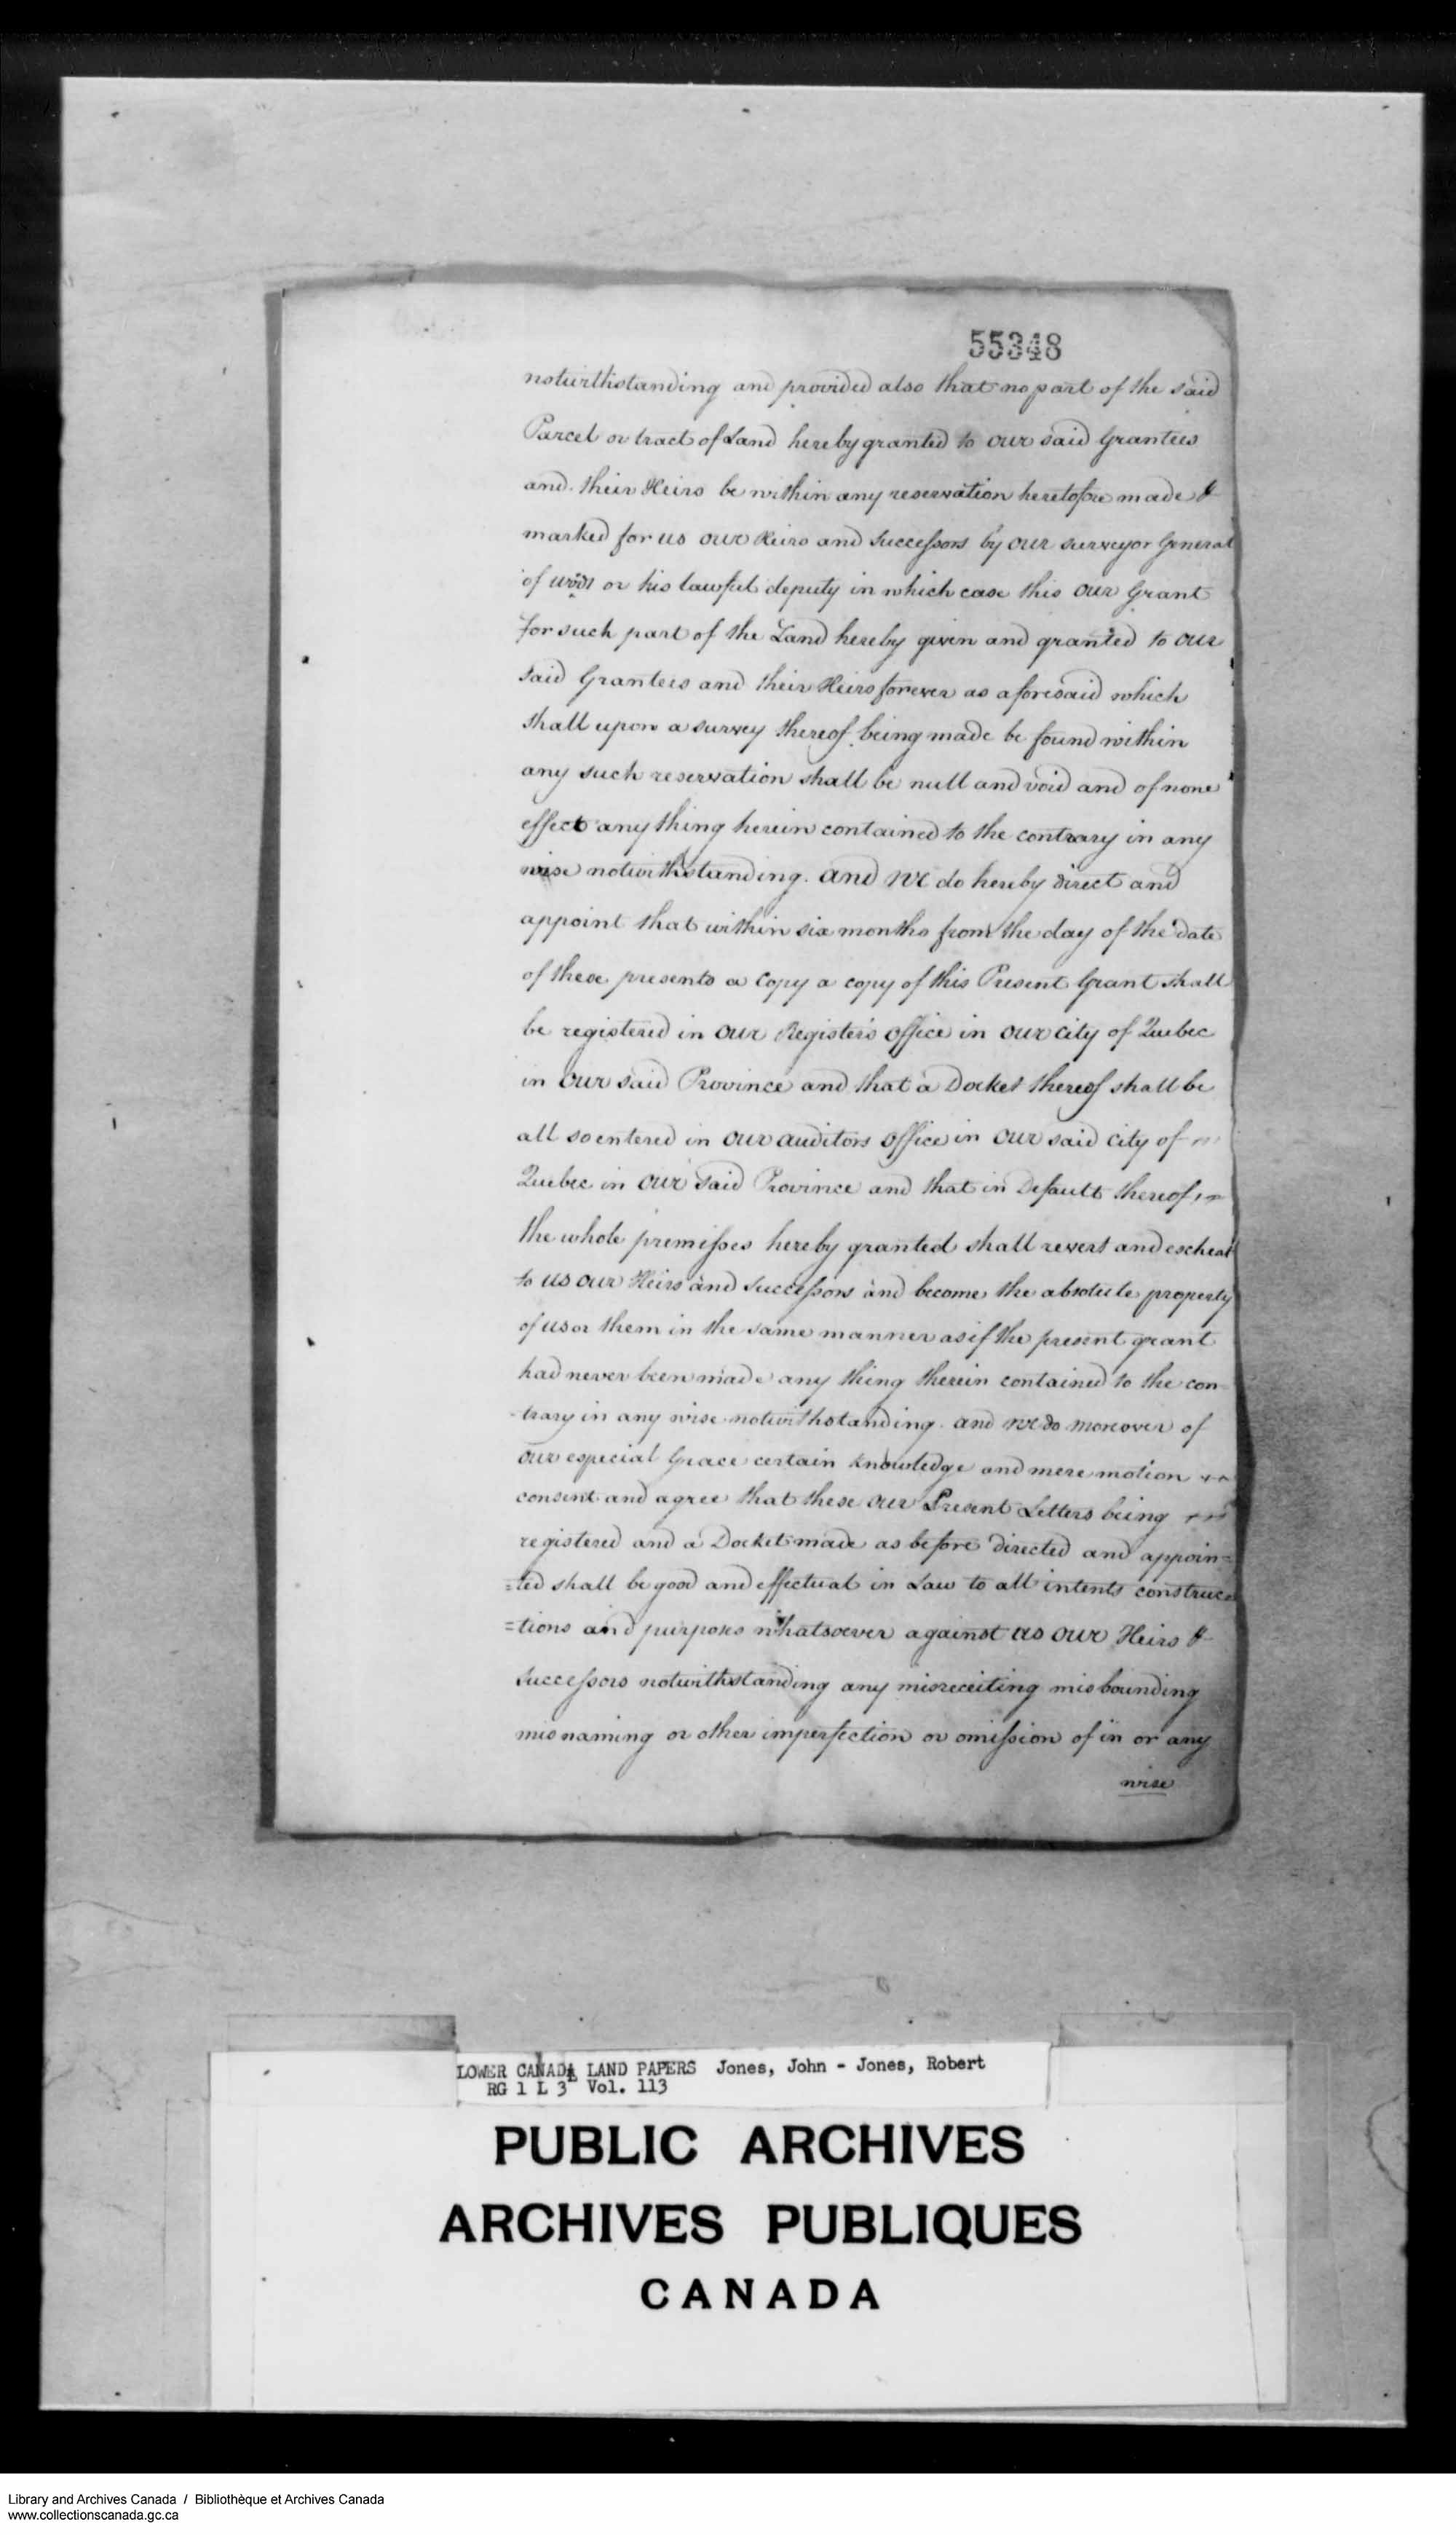 55348
notwithstanding and provided also that no part of the said
Parcel or tract of Land hereby granted to our said Grantees
and their Heirs be within any reservation heretofore made &
marked for us our Heirs and Successors by our surveyor General
of woods or his lawful deputy in which case this our Grant
for such part of the Land hereby given and granted to our
said Grantees and their Heirs forever as aforesaid which
shall upon a survey thereof being made be found within
any such reservation shall be null and void and of none
effect any thing herein contained to the contrary in any
wise notwithstanding. and We do hereby direct and
appoint that within six months from the day of the date
of these presents a Copy a copy of this Present Grant shall
be registered in our Register's office in our city of Quebec
in our said Province and that a Docket thereof shall be
all so entered in our auditors office in our said city of
Quebec in our said Province and that in Default thereof
the whole premisses hereby granted shall revert and escheat
to us our Heirs and Successors and become the absolute property
of us or them in the same manner as if the present grant
had never been made any thing therein contained to the con-
-trary in any wise notwithstanding. and We do moreover of
our especial Grace certain knowledge and mere motion
consent and agree that these our Present Letters being
registered and a Docket made as before directed and appoin=
=ted shall be good and effectual in Law to all intents construc=
=tions and purposes whatsoever against us our Heirs &
Successors notwithstanding any misreceiting misbounding
misnaming or other imperfection or omission of in or any
wise
LOWER CANADA LAND PAPERS Jones, John - Jones, Robert
RG 1 L 3 Vol. 113
PUBLIC ARCHIVES
ARCHIVES PUBLIQUES
CANADA
Library and Archives Canada / Bibliothèque et Archives Canada
www.collectionscanada.gc.ca